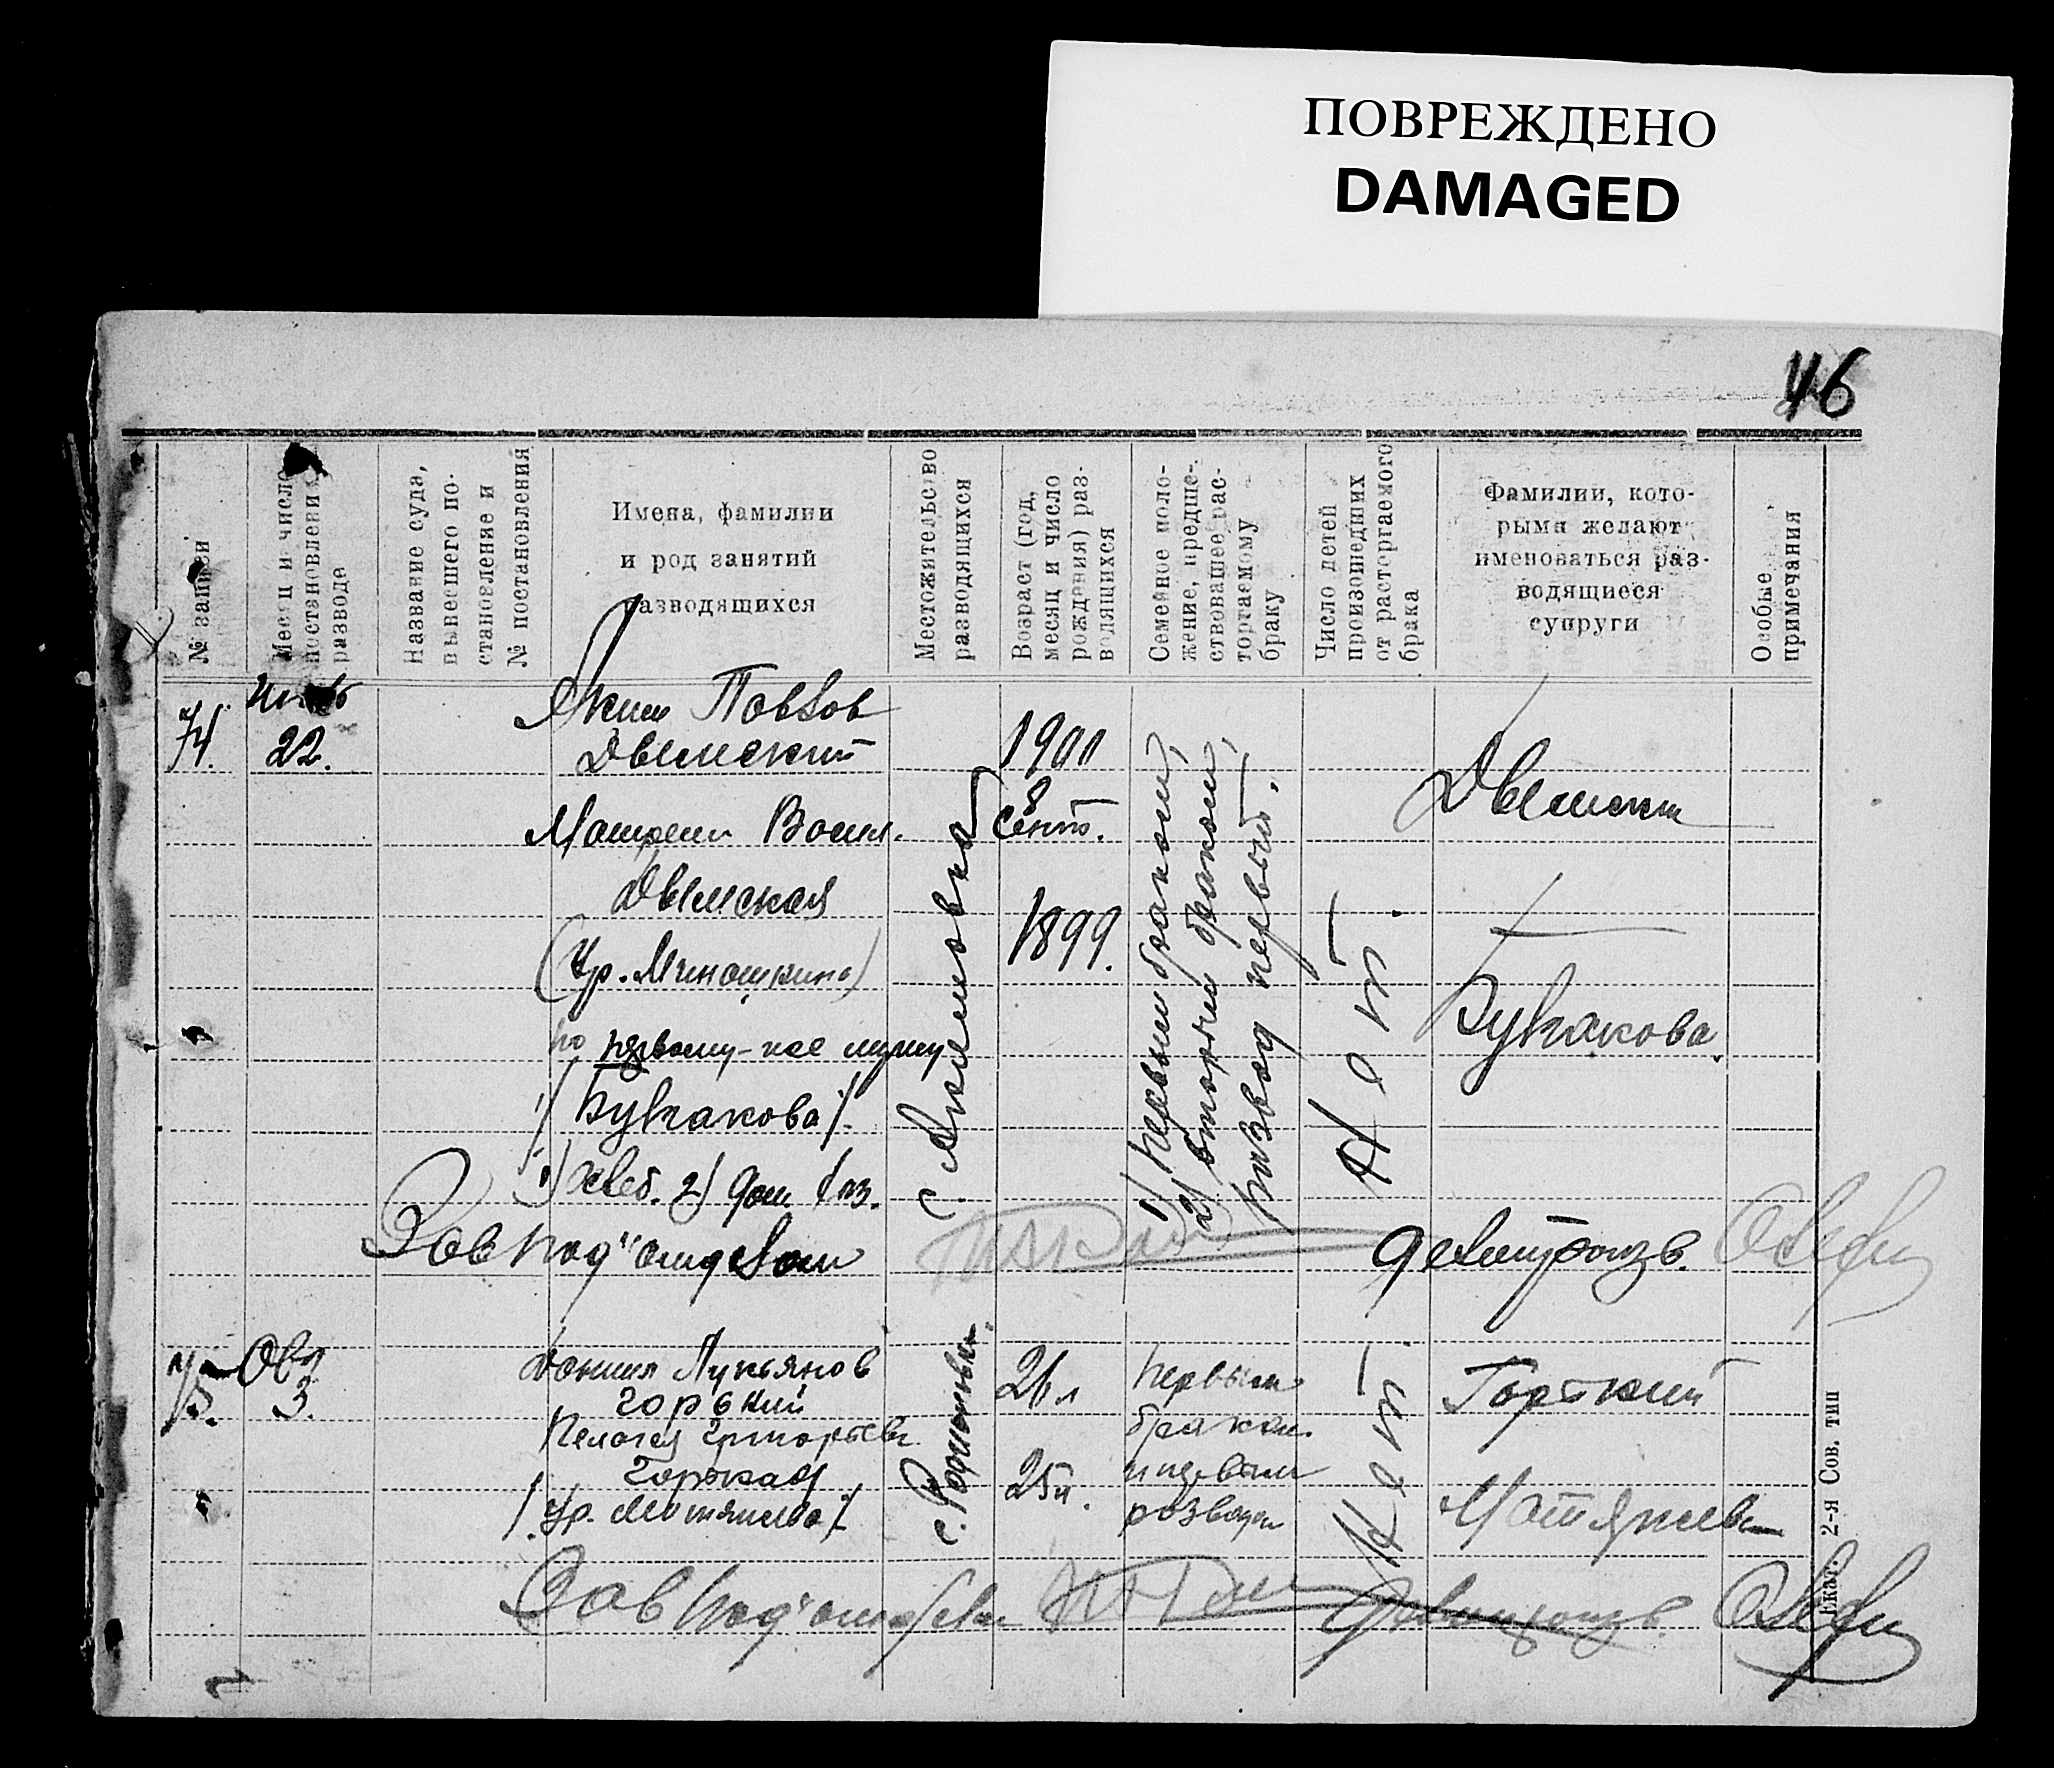 ПОВРЕЖДЕНО
DAMAGED
46
№ записи
Месяц и число постановления о разводе
Название суда, вынесшего постановление и № постановления
Имена, фамилии
и род занятий
разводящихся
Местожительство
разводящихся
Возраст (год,
месяц и число
рождения) раз-
водящихся
Семейное поло-
жение, предше-
ствовавшее рас-
торгаемому
браку
Число детей
происшедших
от расторгаемого
брака
Фамилии, кото-
рыми желают
именоваться раз-
водящиеся
супруги
Особые
примечания
74.
22.
Яким Павлов
Дымский
Матрена Васил.
Дымская
(Ур. Миношкина)
по первому-же мужу
/Бугакова/.
1) хлеб. 2) дом. хоз.
с. Акимовка
1900
8 сент.
1899.
1) первым браком,
2) вторым браком,
развод первый.
Нет.
Дымский
Бугакова.
Зав под"отделом
делопроизв.
75.
3.
Данил Лукьянов
Горький
Пелагея Григорьев.
Горькая
/Ур. Матяшева/
с. Родионовка.
26 л
25 л.
первым
браком
и первым
разводом
Нет.
Горький
Матяшева
Зав под"отделом
делопроизв.
Екат. 2-я Сов. тип